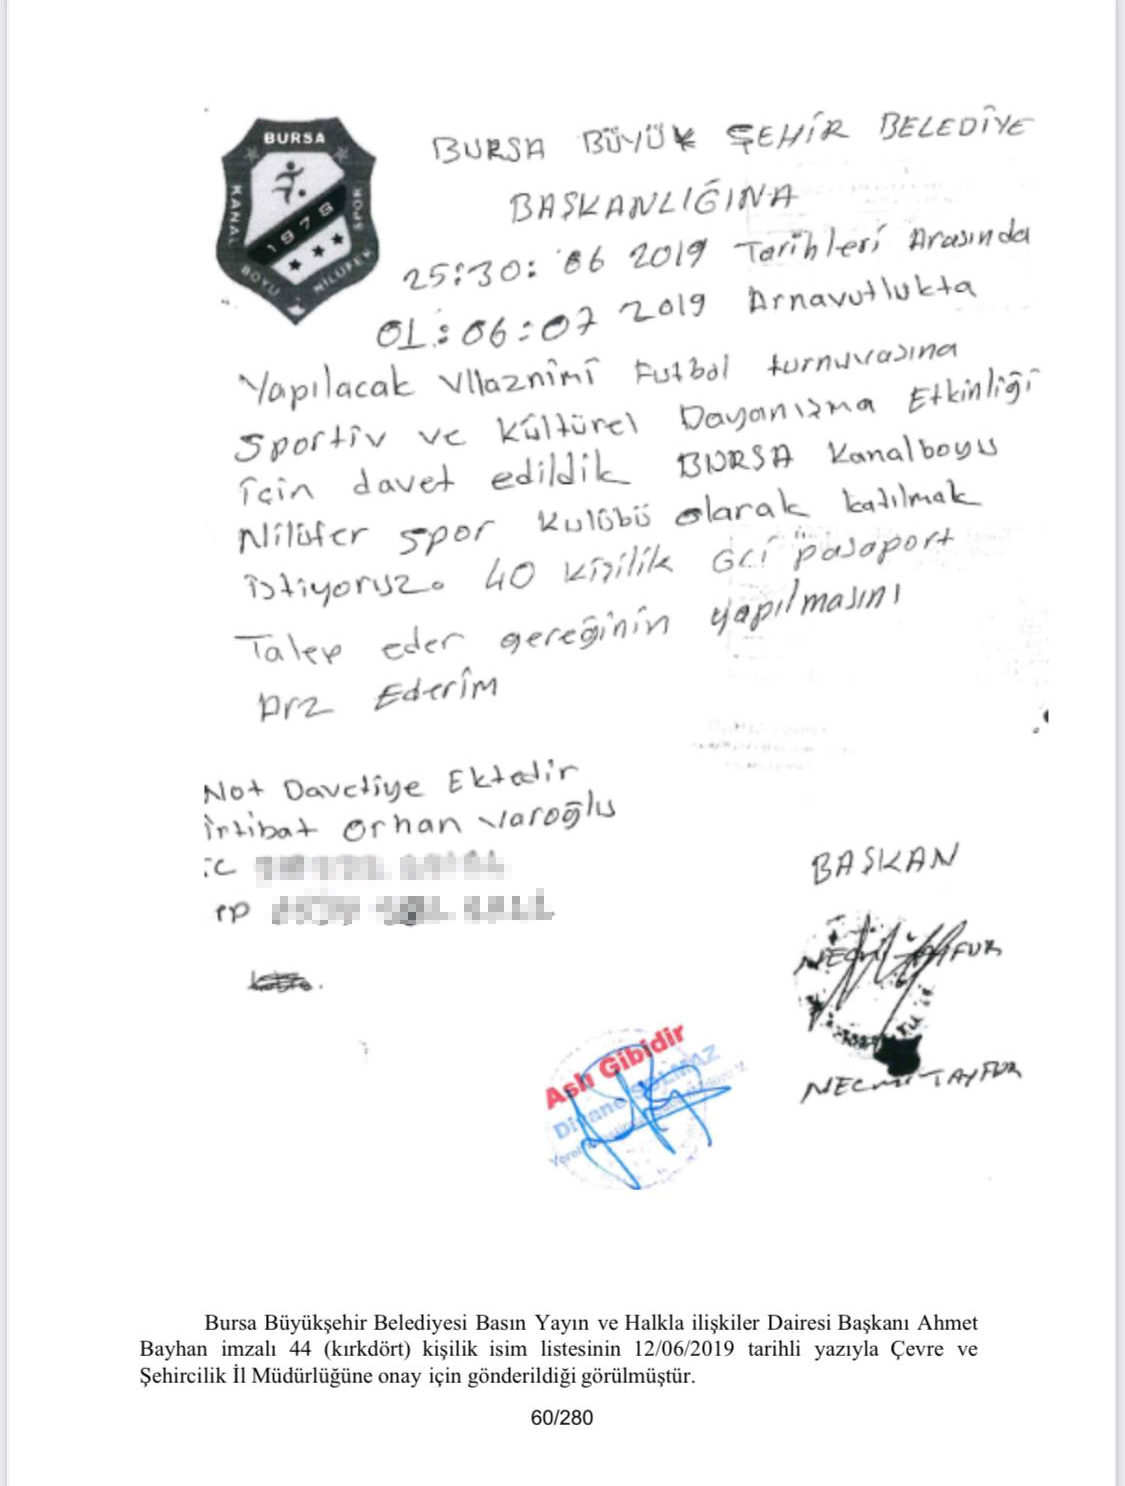 BURSA
KANAL
SPOR
1978
BOYU
NİLÜFER
BURSA BÜYÜK ŞEHİR BELEDİYE
BAŞKANLIĞINA
25:30: 06 2019 Tarihleri Arasında
01:06:07 2019 Arnavutlukta
Yapılacak Vllaznimi Futbol turnuvasına
Sportiv ve Kültürel Dayanışma Etkinliği
için davet edildik BURSA Kanalboyu
Nilüfer spor Kulübü olarak katılmak
istiyoruz. 40 kişilik Gri pasaport
Talep eder gereğinin yapılmasını
Arz Ederim
Not Davetiye Ektedir
İrtibat Orhan Varoğlu
TC
BAŞKAN
NECMİ TAYFUR
NECMİ TAYFUR
Aslı Gibidir
SOLMAZ
Bursa Büyükşehir Belediyesi Basın Yayın ve Halkla ilişkiler Dairesi Başkanı Ahmet
Bayhan imzalı 44 (kırkdört) kişilik isim listesinin 12/06/2019 tarihli yazıyla Çevre ve
Şehircilik İl Müdürlüğüne onay için gönderildiği görülmüştür.
60/280